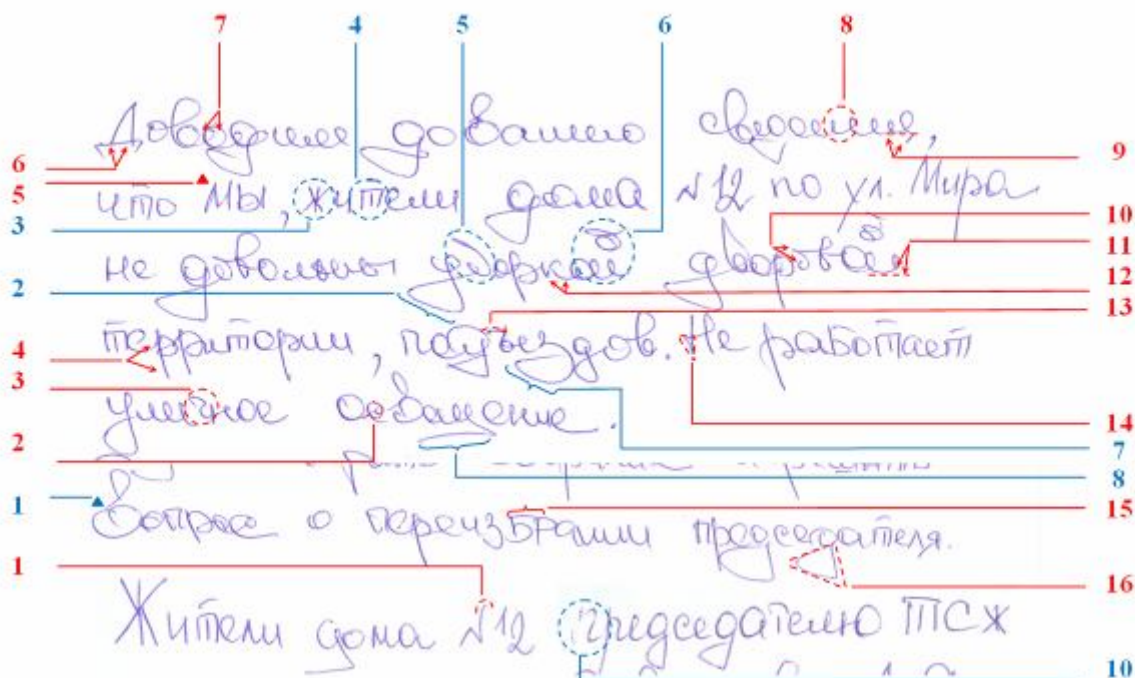 7 4 5 6 8
Доводим до Вашего сведения,
6 9
5 что мы, жители дома №12 по ул. Мира
3 10
11
не довольны уборкой дворовой
2 12
13
территории, подъездов. Не работает
4
3
уличное освещение. 14
2 7
8
1
Вопрос о переизбрании председателя. 15
1 16
Жители дома №12 Председателю ТСЖ
10